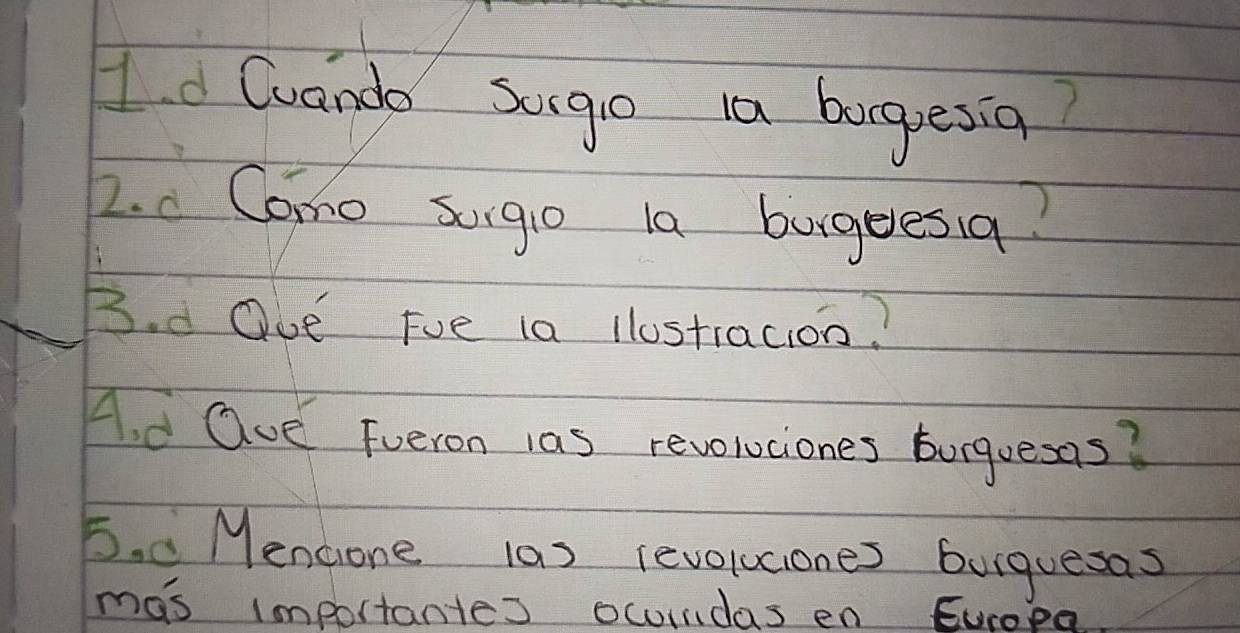 1. ¿Cuándo surgio la burguesía?
2. ¿Cómo surgio la burguesia?
3. ¿Qué Fue la ilustración?
4. ¿Qué Fueron las revoluciones burguesas?
5. ¿Mencione las revoluciones burguesas
más importantes ocurridas en Europa.